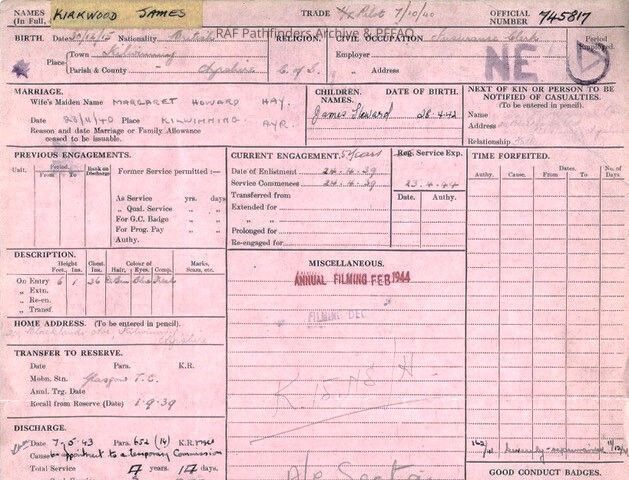 NAMES (In Full, KIRKWOOD JAMES
TRADE Pilot 7/10/40
OFFICIAL NUMBER 745817
RAF Pathfinders Archive & PFFAO
BIRTH. Date Nationality British
Place Town Kilwinning
Parish & County Ayrshire
RELIGION.
C. of S.
CIVIL OCCUPATION Insurance Clerk
Employer
„ Address
Period
NE
MARRIAGE.
Wife's Maiden Name MARGARET HOWARD HAY.
Date 23/11/40 Place KILWINNING AYR.
Reason and date Marriage or Family Allowance
ceased to be issuable.
CHILDREN.
NAMES. DATE OF BIRTH.
James Howard 28.4.42
NEXT OF KIN OR PERSON TO BE
NOTIFIED OF CASUALTIES.
(To be entered in pencil).
Name
Address
Relationship
PREVIOUS ENGAGEMENTS.
Unit. Period. From To Rank on Discharge
Former Service permitted :—
As Service yrs. days
„ Qual. Service „ „
For G.C. Badge „ „
For Prog. Pay „ „
Authy.
CURRENT ENGAGEMENT. 5 years
Date of Enlistment 24.4.39
Service Commences 24.4.39
Transferred from
Extended for
„ „
Prolonged for
Re-engaged for
Reg. Service Exp.
23.4.44
Date. Authy.
TIME FORFEITED.
Authy. Cause. Dates. From To No. of Days
DESCRIPTION.
Height Feet, Ins. Chest. Ins. Colour of Hair, Eyes, Comp. Marks, Scars, etc.
On Entry 6 1 36
„ Extn.
„ Re-en.
„ Transf.
HOME ADDRESS. (To be entered in pencil).
TRANSFER TO RESERVE.
Date Para. K.R.
Mobn. Stn. Glasgow T.C.
Annl. Trg. Date
Recall from Reserve (Date) 1-9-39
DISCHARGE.
Date 7-5-43 Para. 652 (14) K.R.
Cause appointment to a temporary Commission
Total Service 4 years. 14 days.
MISCELLANEOUS.
ANNUAL FILMING FEB 1944
FILMING DEC
GOOD CONDUCT BADGES.